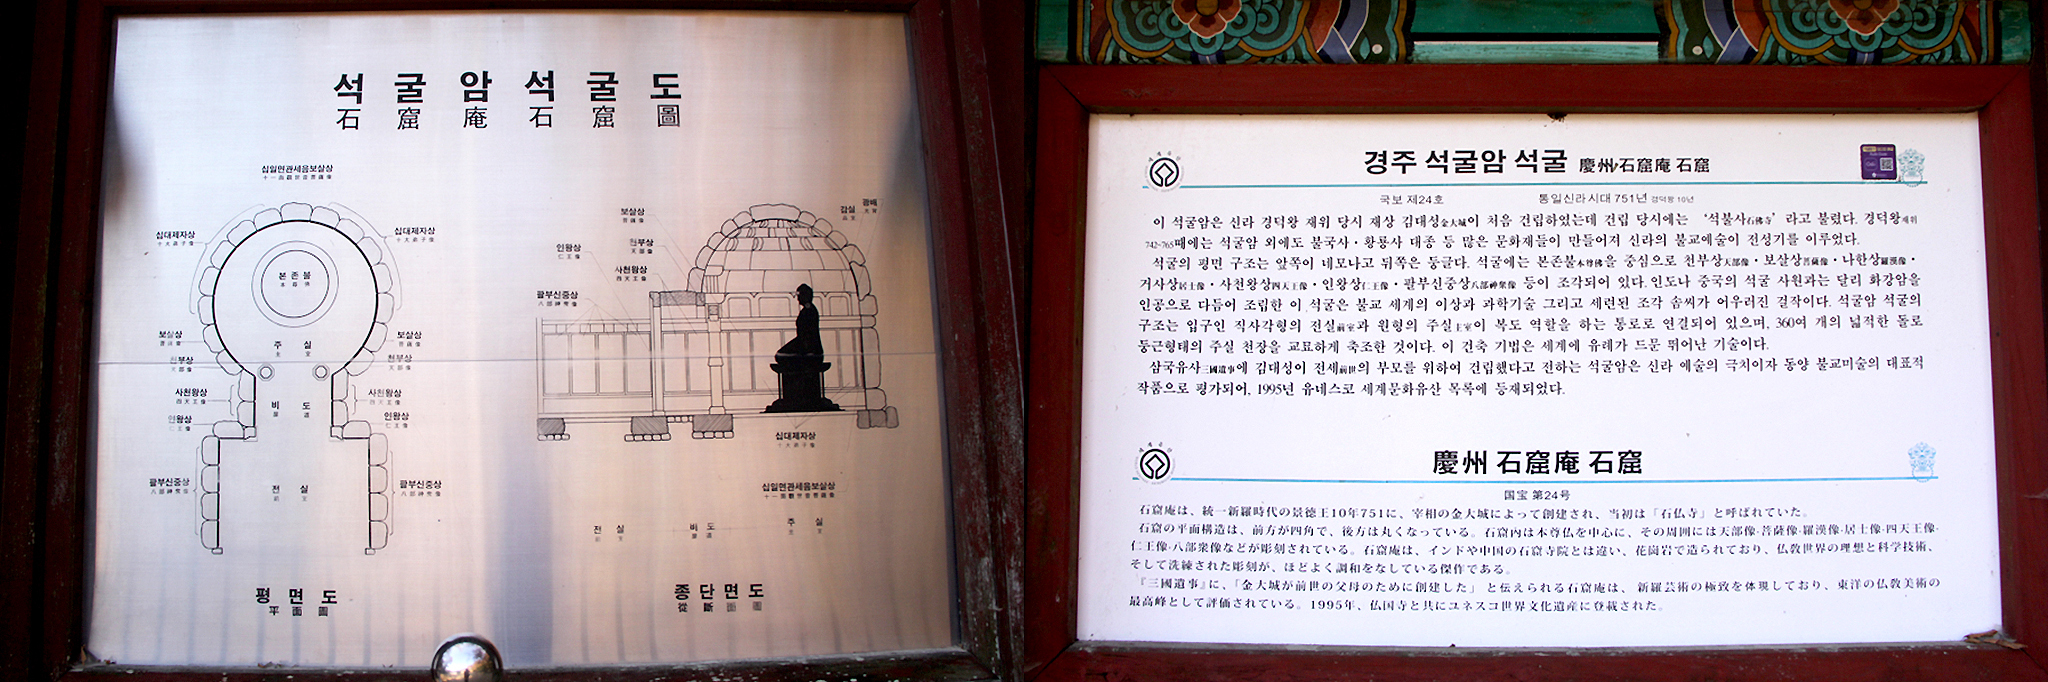 석굴암석굴도
石窟庵石窟圖
십일면관세음보살상
十一面觀世音菩薩像
십대제자상
十大弟子像
십대제자상
十大弟子像
본존불
本尊佛
보살상
菩薩像
보살상
菩薩像
천부상
天部像
천부상
天部像
주실
主室
사천왕상
四天王像
사천왕상
四天王像
비도
扉道
인왕상
仁王像
인왕상
仁王像
팔부신중상
八部神衆像
팔부신중상
八部神衆像
전실
前室
평면도
平面圖
보살상
菩薩像
감실
광배
인왕상
仁王像
천부상
天部像
사천왕상
四天王像
팔부신중상
八部神衆像
십대제자상
十大弟子像
십일면관세음보살상
十一面觀世音菩薩像
전실
前室
비도
扉道
주실
主室
종단면도
從斷面圖
경주 석굴암 석굴 慶州 石窟庵 石窟
국보 제24호 통일신라시대 751년 경덕왕 10년
이 석굴암은 신라 경덕왕 재위 당시 재상 김대성金大城이 처음 건립하였는데 건립 당시에는 ‘석불사石佛寺’라고 불렀다. 경덕왕재위
742~765때에는 석굴암 외에도 불국사·황룡사 대종 등 많은 문화재들이 만들어져 신라의 불교예술이 전성기를 이루었다.
석굴의 평면 구조는 앞쪽이 네모나고 뒤쪽은 둥글다. 석굴에는 본존불本尊佛을 중심으로 천부상天部像·보살상菩薩像·나한상羅漢像·
거사상居士像·사천왕상四天王像·인왕상仁王像·팔부신중상八部神衆像 등이 조각되어 있다. 인도나 중국의 석굴 사원과는 달리 화강암을
인공으로 다듬어 조립한 이 석굴은 불교 세계의 이상과 과학기술 그리고 세련된 조각 솜씨가 어우러진 걸작이다. 석굴암 석굴의
구조는 입구인 직사각형의 전실前室과 원형의 주실主室이 복도 역할을 하는 통로로 연결되어 있으며, 360여 개의 넓적한 돌로
둥근형태의 주실 천장을 교묘하게 축조한 것이다. 이 건축 기법은 세계에 유례가 드문 뛰어난 기술이다.
삼국유사三國遺事에 김대성이 전세前世의 부모를 위하여 건립했다고 전하는 석굴암은 신라 예술의 극치이자 동양 불교미술의 대표적
작품으로 평가되어, 1995년 유네스코 세계문화유산 목록에 등재되었다.
慶州 石窟庵 石窟
国宝 第24号
石窟庵は、統一新羅時代の景徳王10年751に、宰相の金大城によって創建され、当初は「石仏寺」と呼ばれていた。
石窟の平面構造は、前方が四角で、後方は丸くなっている。石窟内は本尊仏を中心に、その周囲には天部像·菩薩像·羅漢像·居士像·四天王像·
仁王像·八部衆像などが彫刻されている。石窟庵は、インドや中国の石窟寺院とは違い、花崗岩で造られており、仏教世界の理想と科学技術、
そして洗練された彫刻が、ほどよく調和をなしている傑作である。
『三國遺事』に、「金大城が前世の父母のために創建した」と伝えられる石窟庵は、新羅芸術の極致を体現しており、東洋の仏教美術の
最高峰として評価されている。1995年、仏国寺と共にユネスコ世界文化遺産に登載された。